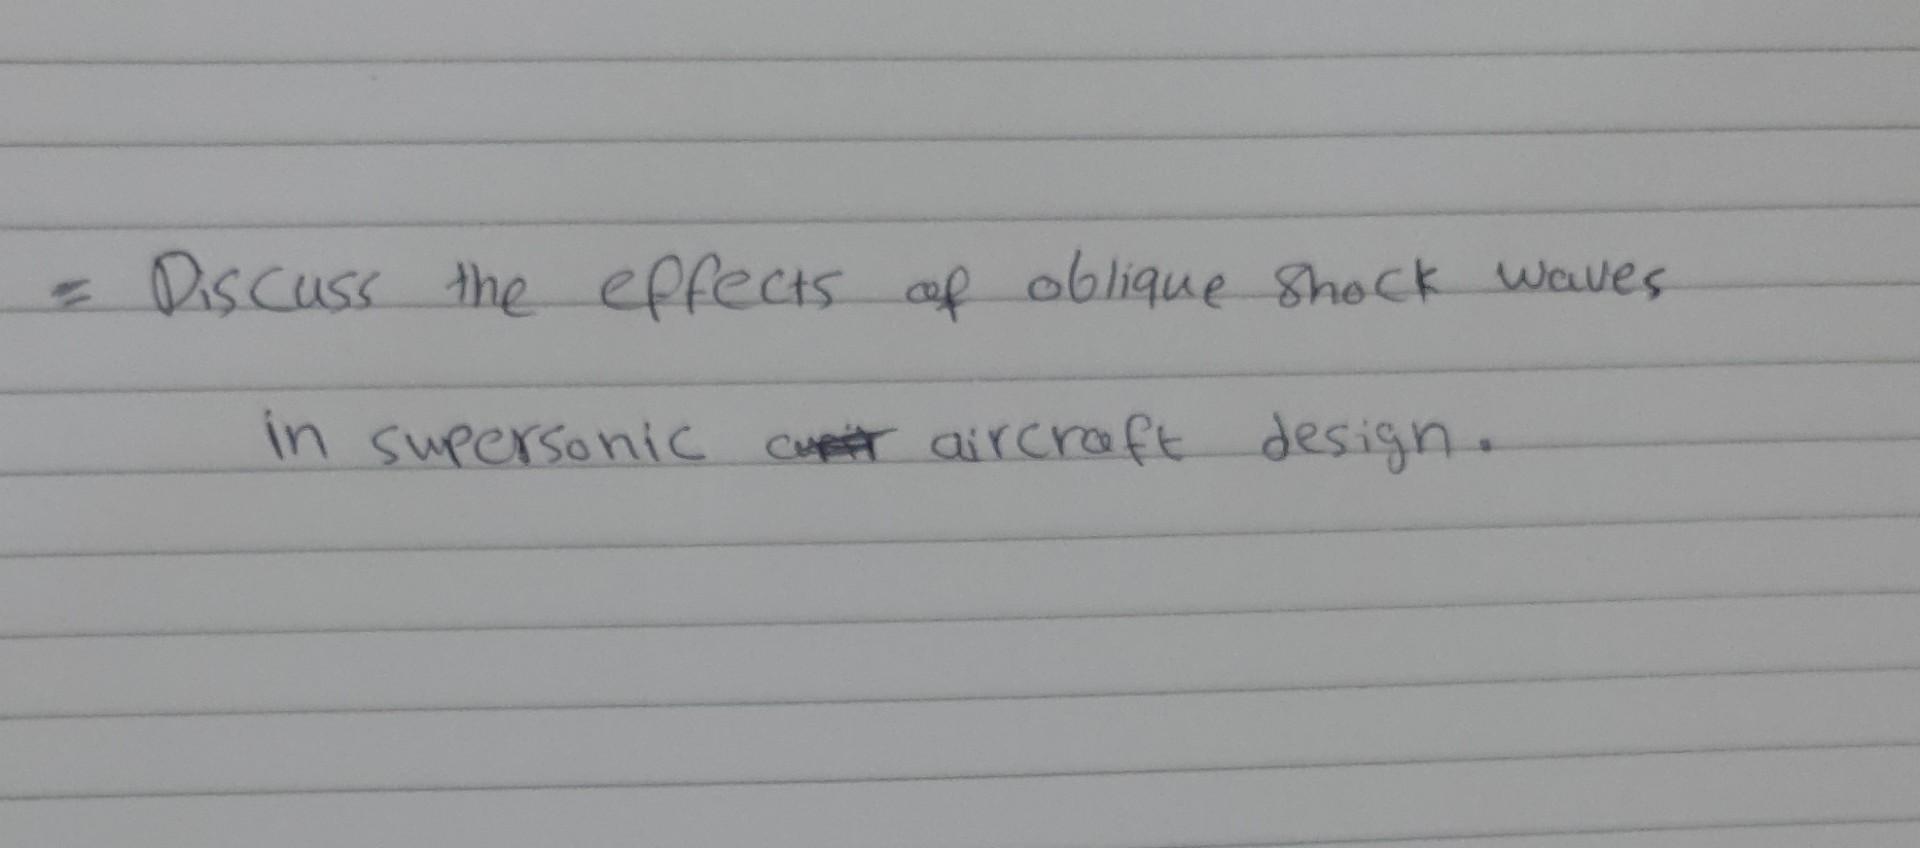 = Discuss the effects of oblique shock waves
in supersonic aircraft design.